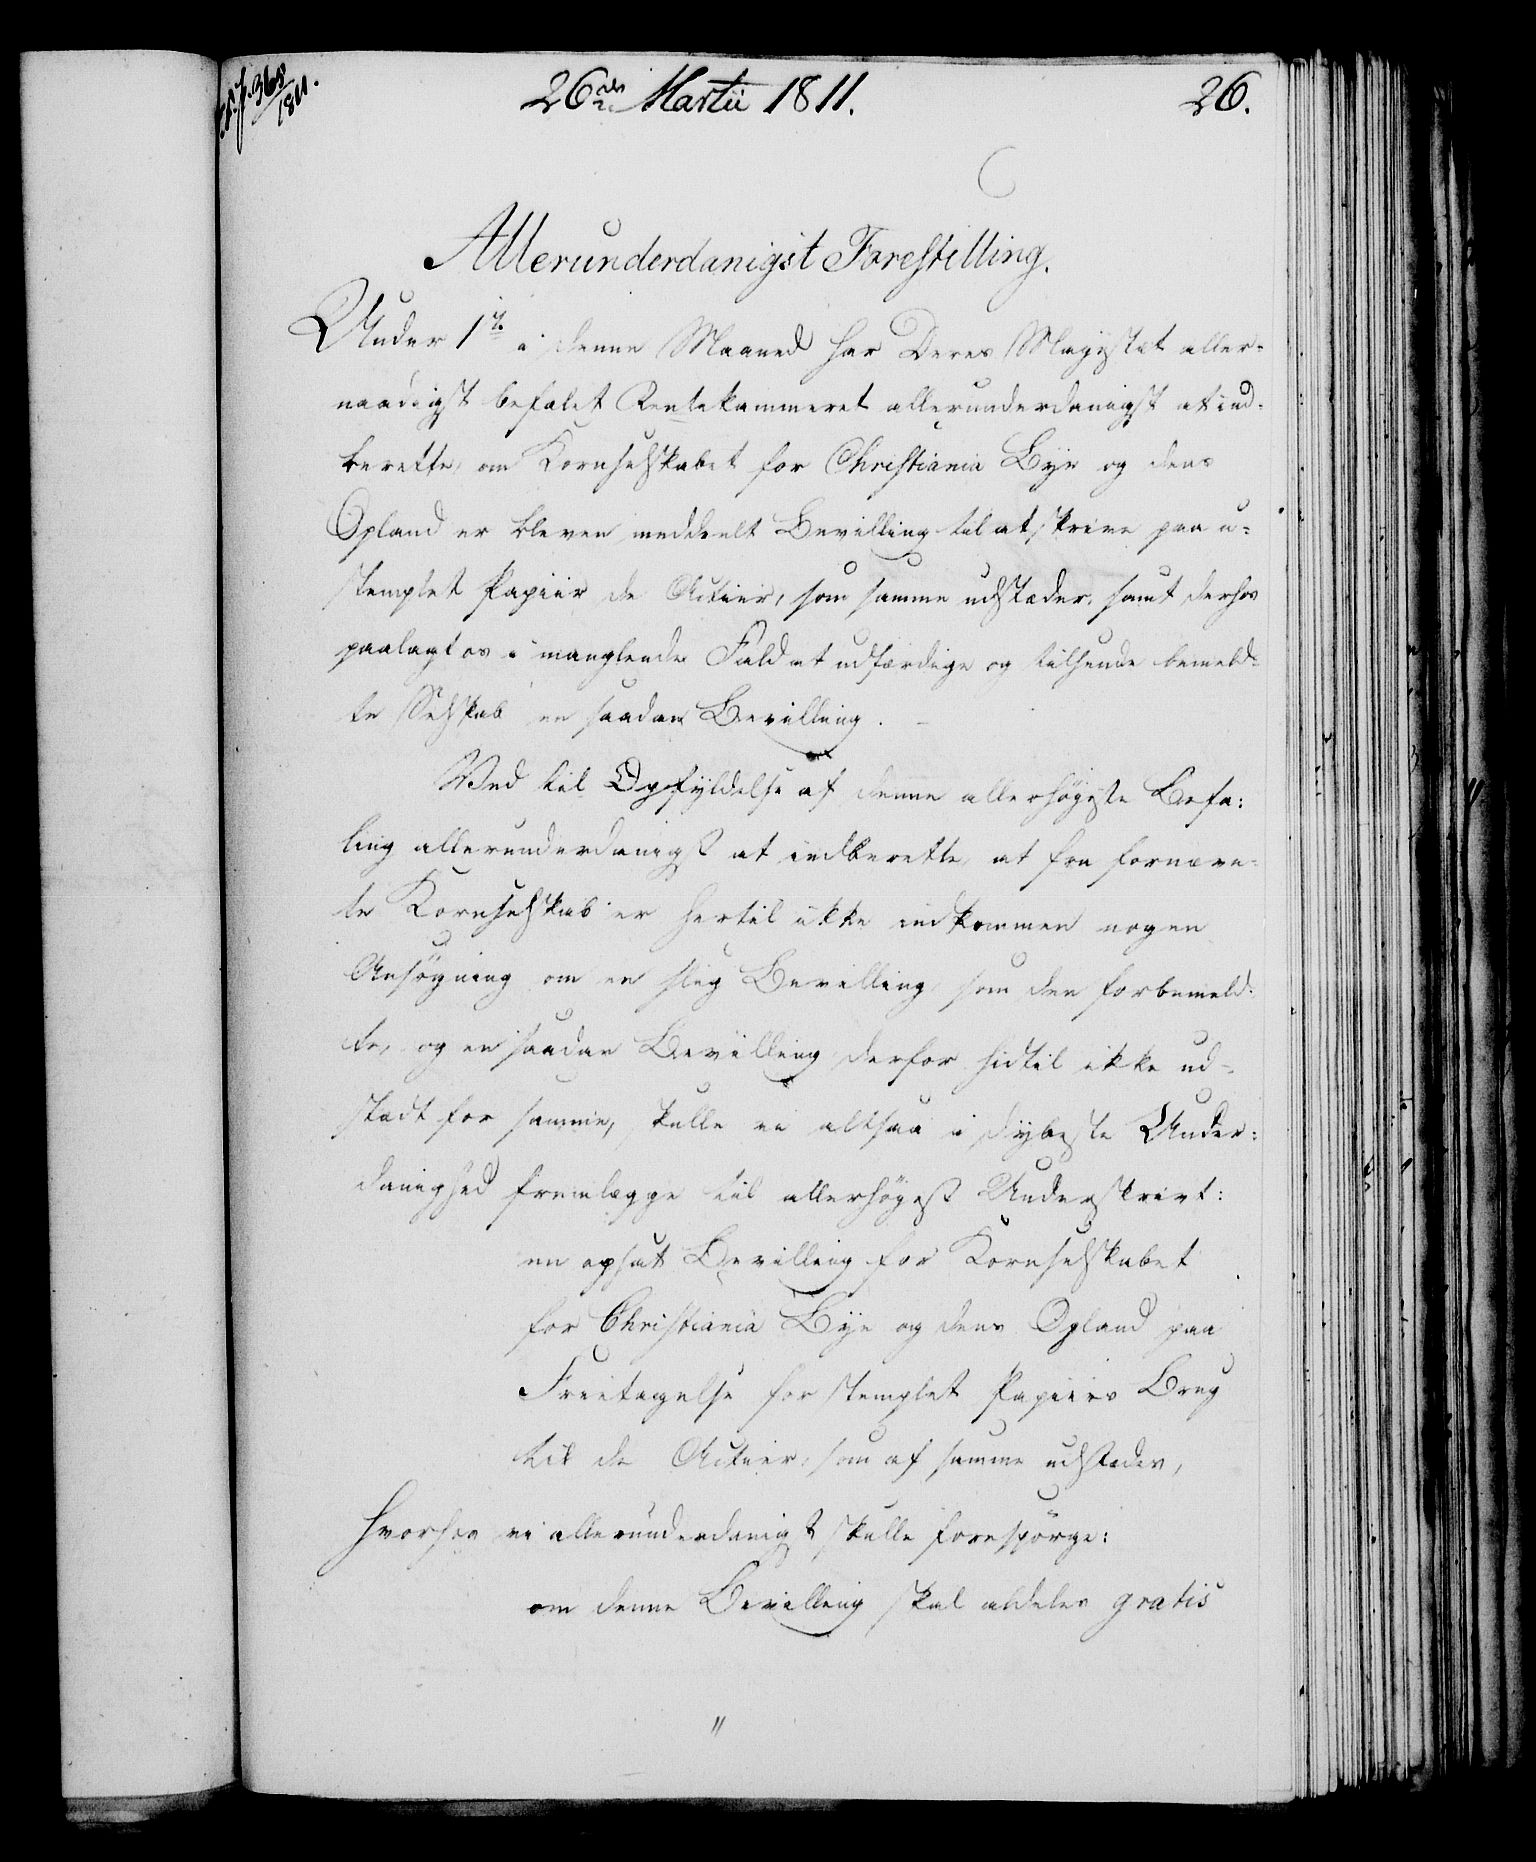 368
1811.
26de Martii 1811.
26.
Allerunderdanigst Forestilling.
Under 1te i denne Maaned har Deres Majestæt aller-
naadigst befalet Rentekammeret allerunderdanigst at ind-
berette, om Kornselskabet for Christiania Bye og dens
Opland er bleven meddeelt Bevilling til at skrive paa u-
stemplet Papiir de Actier, som samme udstæder, samt derhos
paalagt os i manglende Fald at udfærdige og tilsende bemeld-
te Selskab en saadan Bevilling.
Ved til Opfyldelse af denne allerhøyeste Befa-
ling allerunderdanigst at indberette, at fra fornævn-
te Kornselskab er hertil ikke indkommen nogen
Ansøgning om en slig Bevilling som den forbemeld-
te, og en saadan Bevilling derfor hidtil ikke ud-
stædt for samme, skulle vi altsaa i dybeste Under-
danighed fremlægge til allerhøyest Underskrivt:
en opsat Bevilling for Kornselskabet
for Christiania Bye og dens Opland paa
Friitagelse for stemplet Papiirs Brug
til de Actier, som af samme udstædes,
hvorhos vi allerunderdanigst skulle forespørge:
om denne Bevilling skal aldeles gratis
"